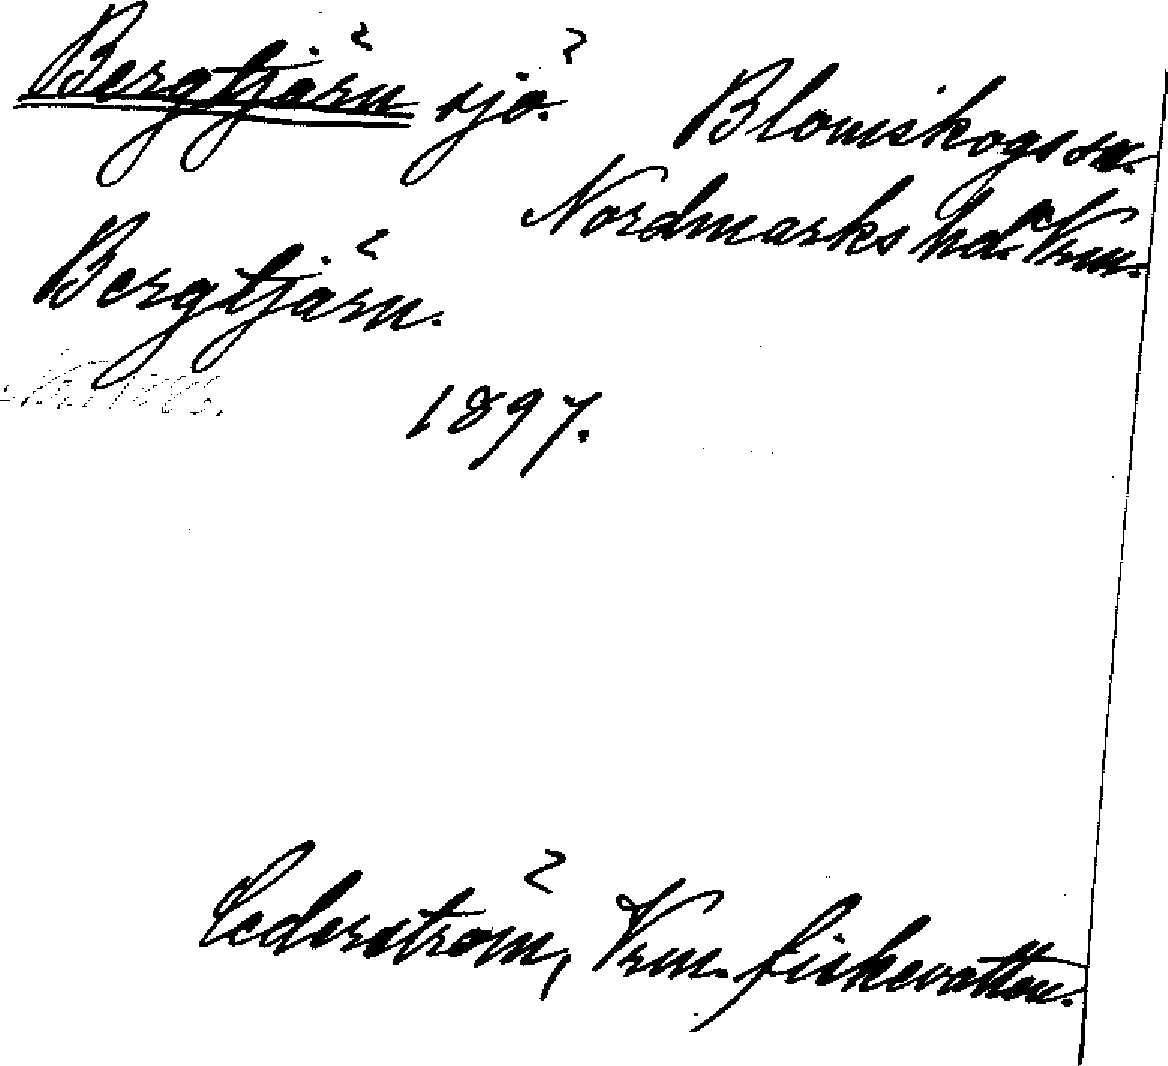 Bergtjärn sjö.
Blomskogs sn.
Nordmarks hd. Vrm.
Bergtjärn.
1897.
Cederström, Vrm. fiskevatten.